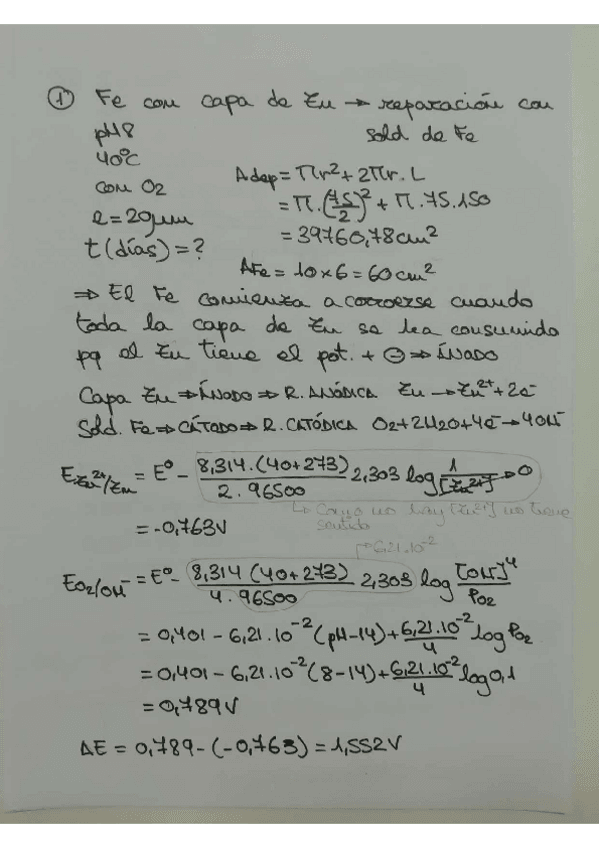 ① Fe con capa de Zn → reparación con
pH 8 sold de Fe
40ºC
con O2
e = 20μm
t (días) = ?
Adep = πr² + 2πr.L
= π.(75/2)² + π.75.150
= 39760,78cm²
AFe = 10x6 = 60cm²
⇒ El Fe comienza a corroerse cuando
toda la capa de Zn se ha consumido
pq el Zn tiene el pot. + ⊖ ⇒ ÁNODO
Capa Zn ⇒ ÁNODO ⇒ R. ANÓDICA Zn → Zn²⁺ + 2e⁻
Sold. Fe ⇒ CÁTODO ⇒ R. CATÓDICA O2 + 2H2O + 4e⁻ → 4OH⁻
E Zn²⁺/Zn = E⁰ - 8,314.(40+273)/2.96500 2,303 log 1/[Zn²⁺] → 0
↳ Como no hay [Zn²⁺] no tiene
sentido
= -0,763V
→ 6,21.10⁻²
E O2/OH⁻ = E⁰ - 8,314(40+273)/4.96500 2,303 log [OH⁻]⁴/PO2
= 0,401 - 6,21.10⁻²(pH-14) + 6,21.10⁻²/4 log PO2
= 0,401 - 6,21.10⁻²(8-14) + 6,21.10⁻²/4 log 0,1
= 0,789V
ΔE = 0,789 - (-0,763) = 1,552V